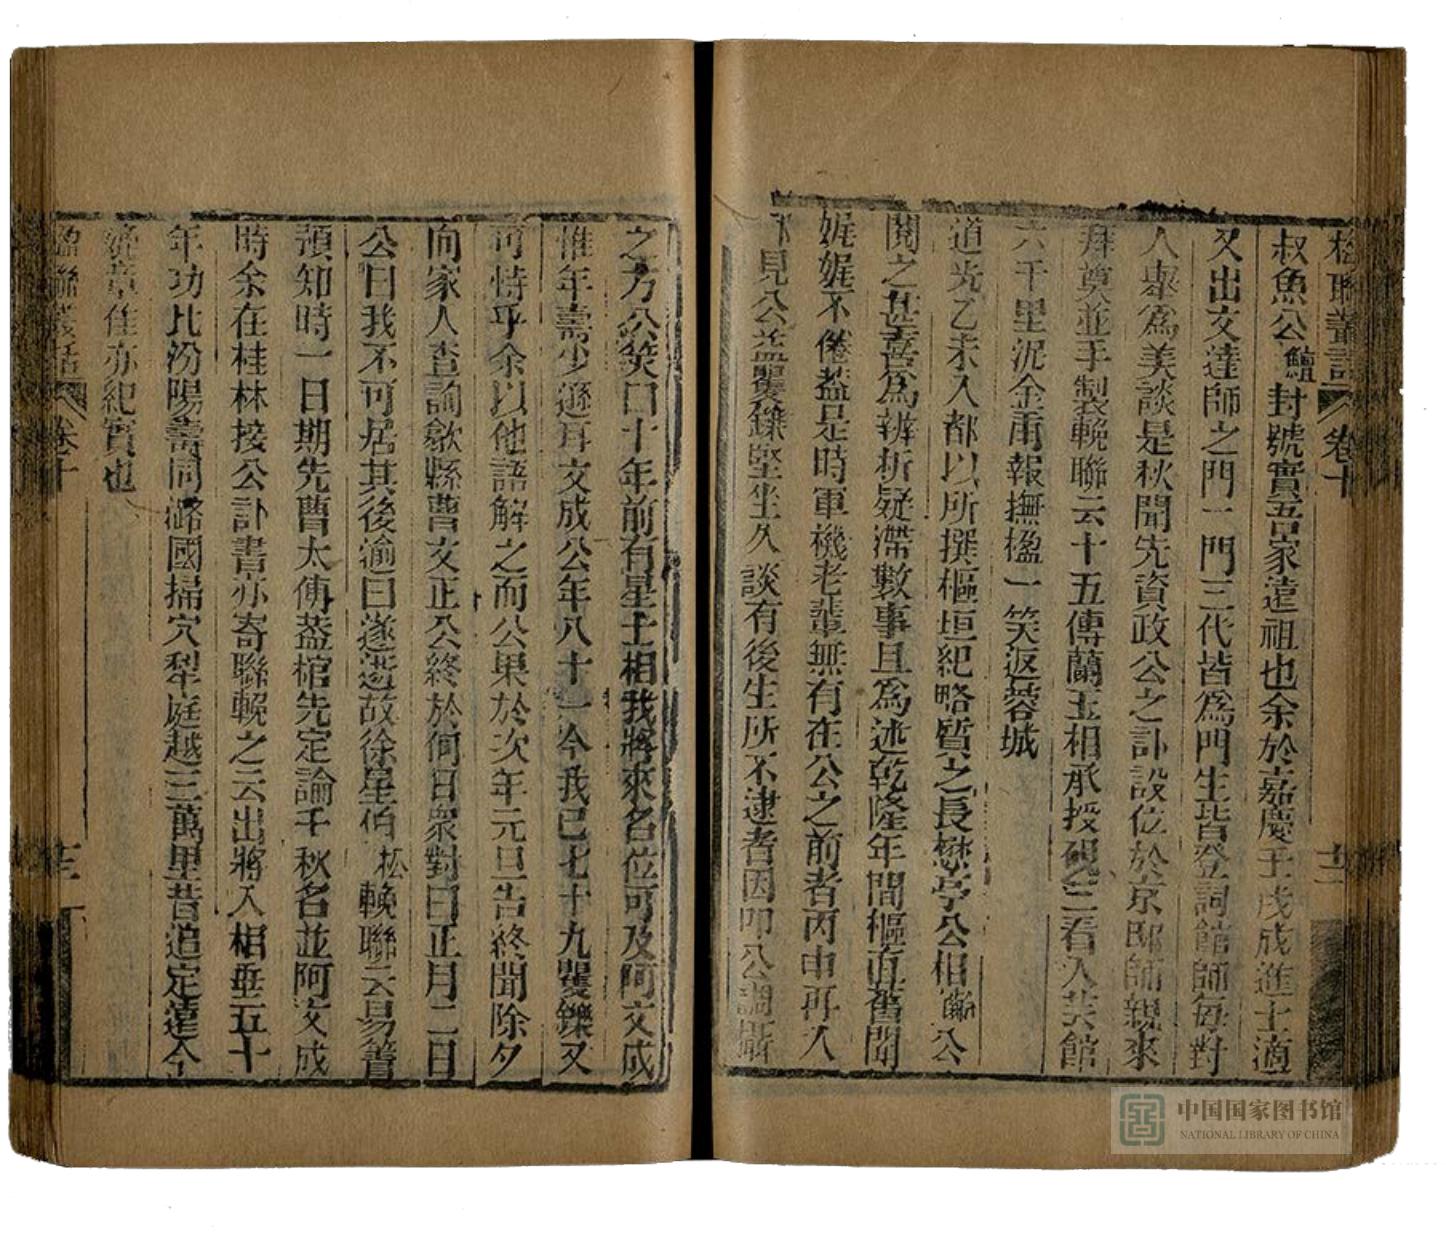 楹聯叢話 卷十 十二
叔魚公鱣封號實吾家遠祖也余於嘉慶壬戌成進士適
又出文達師之門一門三代皆為門生皆登詞館師每對
人舉為美談是秋聞先資政公之訃設位於京邸師親來
拜奠並手製輓聯云十五傳蘭玉相承授硯三看入芸館
六千里泥金甫報撫楹一笑返蓉城
道光乙未入都以所撰樞垣紀略質之長懋亭公相齡公
閱之甚喜為辨折疑滯數事且為述乾隆年間樞直舊聞
娓娓不倦蓋是時軍機老輩無有在公之前者丙申再入
都見公益矍鑠堅坐久談有後生所不逮者因叩公調攝
之方公笑曰十年前有星士相我將來名位可及阿文成
惟年壽少遜耳文成公年八十一今我已七十九矍鑠又
可恃乎余以他語解之而公果於次年元旦告終聞除夕
向家人查詢歙縣曹文正公終於何日眾對曰正月二日
公曰我不可居其後渝曰遂逝故徐星伯松輓聯云易簀
預知時一日期先曹太傅蓋棺先定論千秋名並阿文成
時余在桂林接公訃書亦寄聯輓之云出將入相垂五十
年功比汾陽壽同潞國掃穴犁庭越三萬里昔追定遠今
媲章佳亦紀實也
楹聯叢話 卷十 十三
中国国家图书馆
NATIONAL LIBRARY OF CHINA